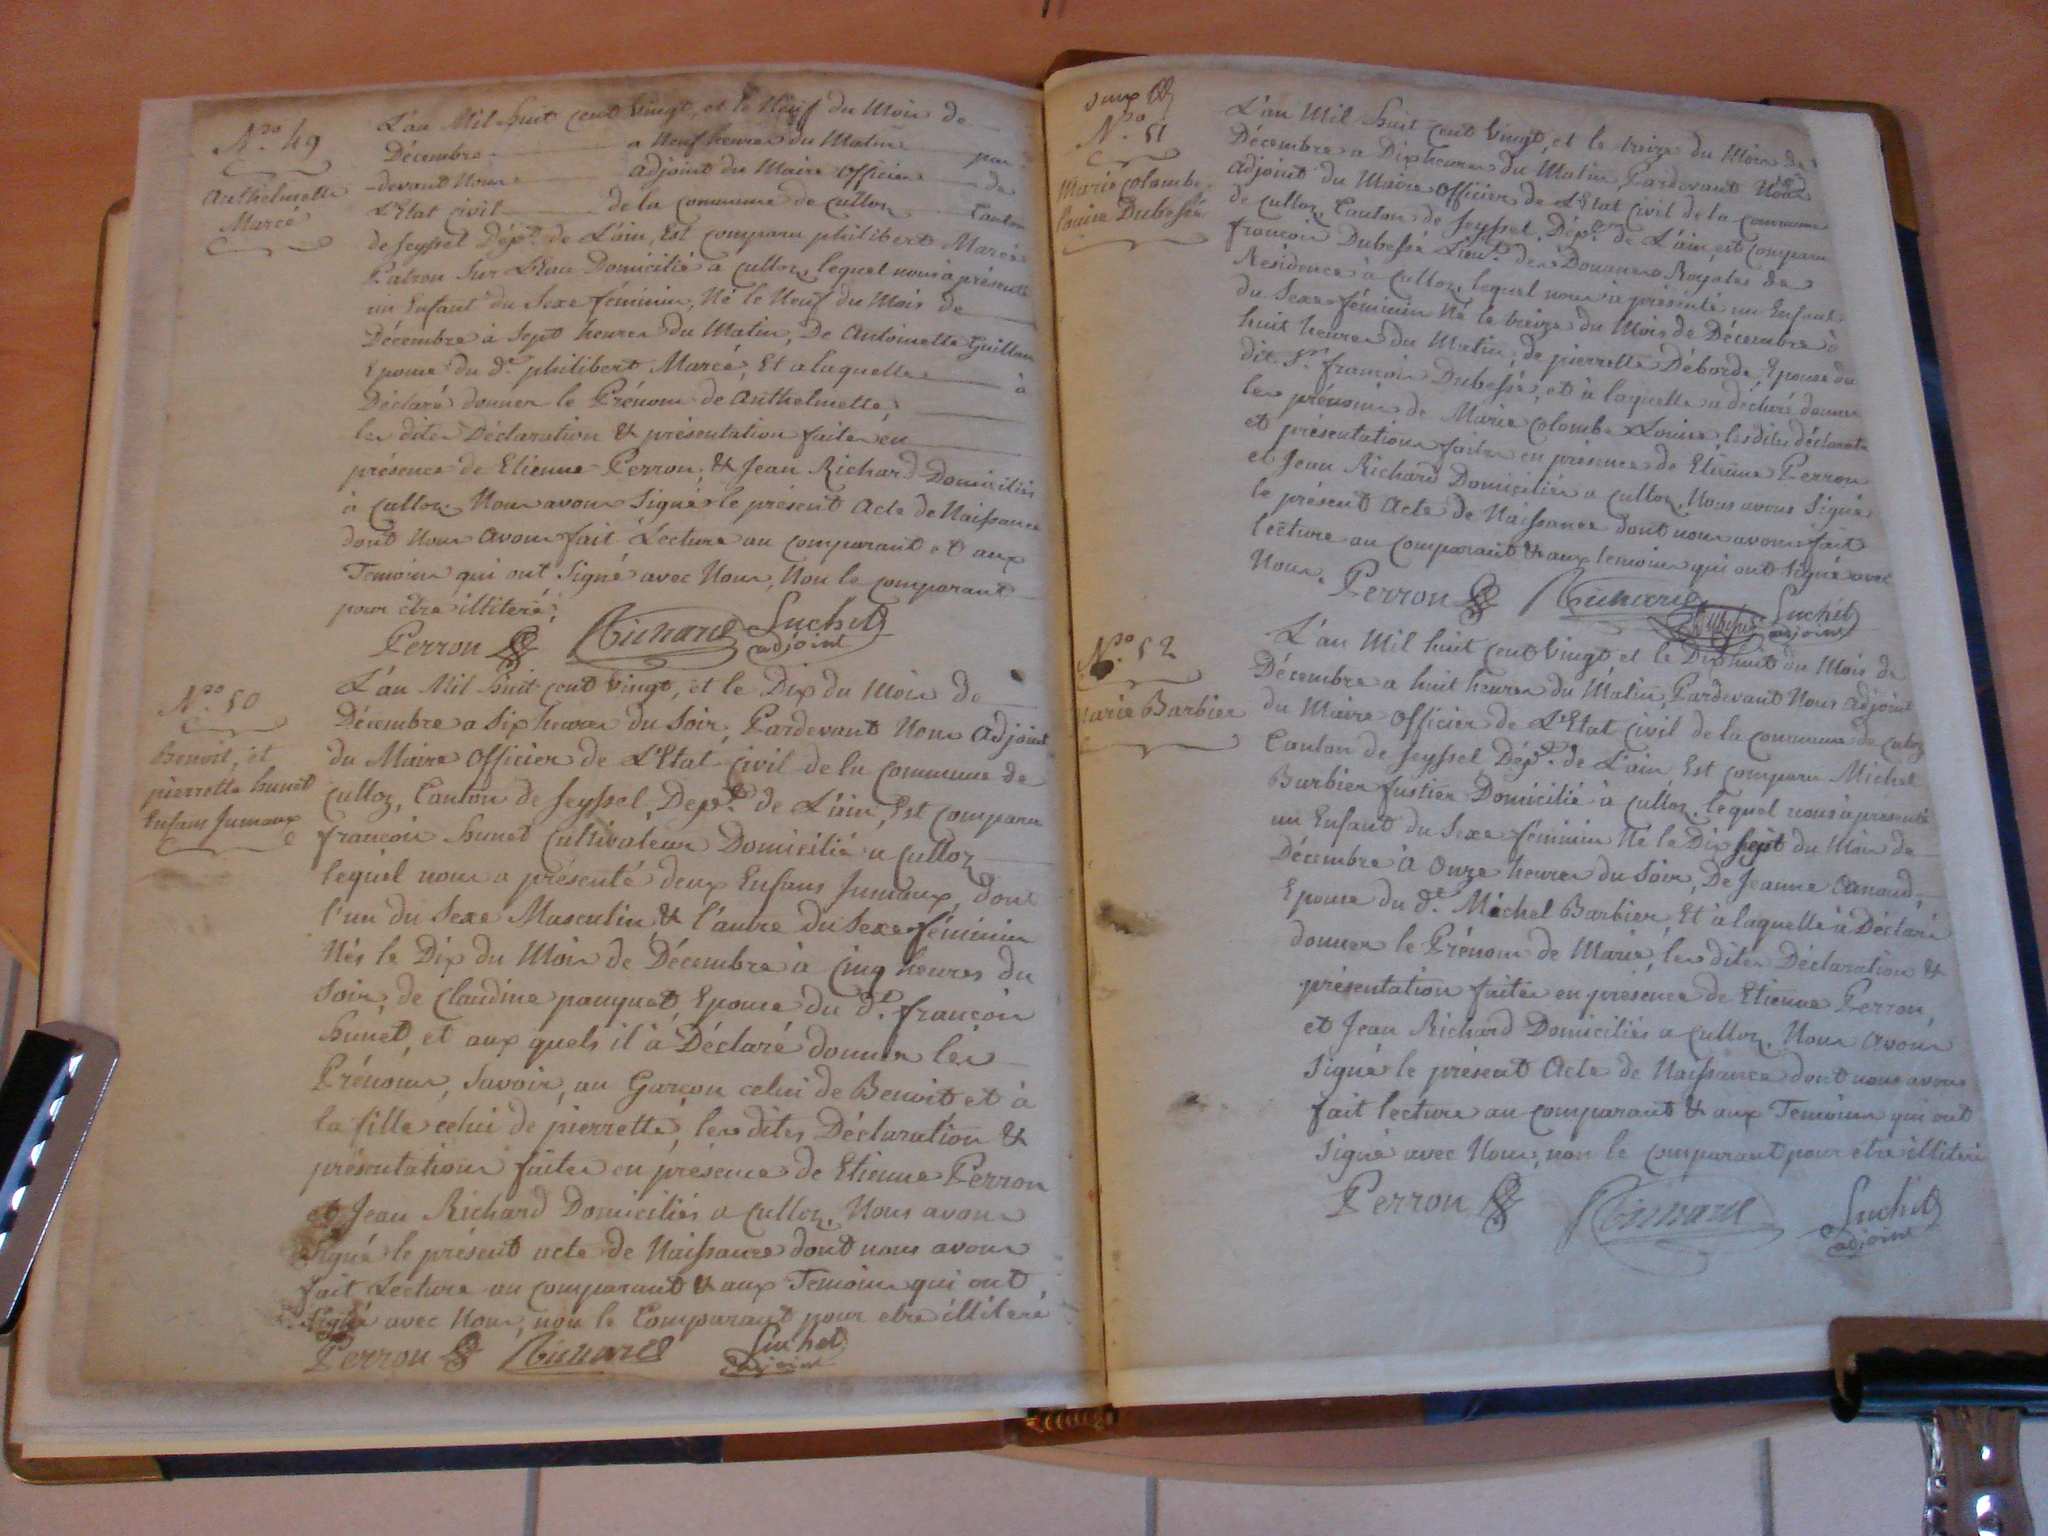 N.ro 49
Anthelmette
Marcé
L'an Mil huit cent vingt, et le Neuf du Mois de
Décembre a Neuf heures du Matin par
devant Nous adjoint du Maire officier de
L'Etat civil de la commune de culloz Canton
de seyssel Dép.t de L'ain, Est comparu philibert Marcé
Patron sur L'Eau Domicilié a culloz, lequel nous à présenté
un Enfant du Sexe féminin, Né le Neuf du Mois de
Décembre à Sept heures du Matin, De Antoinette Guillan
Epouse du d.t philibert Marcé, Et a laquelle à
Déclaré donner le Prénom de Anthelmette,
les dites Déclaration & présentation faites en
présence de Etienne Perron, & Jean Richard Domiciliés
à culloz. Nous avons Signé le présent Acte de Naissance
dont Nous Avons fait Lecture au comparant et aux
Temoins qui ont Signé avec Nous, Non le comparant
pour être illiteré.
Perron Richard Luchet
adjoint
N.ro 50
Benoit, et
pierrette hunet
Enfans Jumeaux
L'an Mil huit cent vingt, et le Dix du Mois de
Décembre a Six heures du Soir. Pardevant Nous Adjoint
du Maire Officier de L'Etat civil de la Commune de
culloz, Canton de seyssel, Dep.t de L'ain, Est comparu
françois hunet Cultivateur Domicilié a culloz
lequel nous a présenté deux Enfans Jumeaux, dont
l'un du Sexe Masculin & l'autre du Sexe féminin
Nés le Dix du Mois de Décembre à cinq heures du
Soir, de Claudine pauquet, Epouse du d.t françois
hunet, et aux quels il à Déclaré donner les
Prénoms, Savoir, au Garçon celui de Benoit et à
la fille celui de pierrette, les dites Déclaration &
présentation faites en présence de Etienne Perron
et Jean Richard Domiciliés a culloz, Nous avons
Signé le présent acte de Naissance dont nous avons
fait Lecture au comparant & aux Temoins qui ont
Signé avec Nous, non le Comparant pour etre illiteré
Perron Richard Luchet
adjoint
N.ro 51
Marie Colombe
Louise Dubessé
L'an Mil huit cent vingt, et le treize du Mois de
Décembre a Dix heures du Matin, Pardevant Nous
Adjoint du Maire Officier de L'Etat Civil de la Commune
de culloz, Canton de seyssel, Dép.t de L'ain, est comparu
françois Dubessé Lieut.t des Douanes Royales de
Résidence à culloz, lequel nous à présenté un Enfant
du Sexe féminin Né le treize du Mois de Décembre à
huit heures du Matin, de pierrette Déborde, Epouse du
dit S.r françois Dubessé, et à laquelle a déclaré donner
les prénoms de Marie Colombe Louise, les dites déclaration
et présentation faites en présence de Etienne Perron
et Jean Richard Domiciliés a culloz, Nous avons Signé
le présent Acte de Naissance dont nous avons fait
lecture au comparant & aux temoins qui ont signé avec
Nous. Perron Richard Luchet
Dubessé adjoint
N.ro 52
Marie Barbier
L'an Mil huit cent vingt et le Dix huit du Mois de
Décembre a huit heures du Matin, Pardevant Nous Adjoint
du Maire Officier de L'Etat Civil de la Commune de culoz
Canton de seyssel Dép.t de L'ain, Est comparu Michel
Barbier fustier Domicilié à culloz, lequel nous à présenté
un Enfant du Sexe féminin Né le Dix sept du Mois de
Décembre à Onze heures du Soir, De Jeanne Canaud,
Epouse du d.t Michel Barbier, Et à laquelle à Déclaré
donner le Prénom de Marie, les dites Déclaration &
présentation faites en présence de Etienne Perron,
et Jean Richard Domiciliés a culloz. Nous Avons
Signé le présent Acte de Naissance dont nous avons
fait lecture au comparant & aux Temoins qui ont
Signé avec Nous, non le Comparant pour etre illiteré
Perron Richard Luchet
adjoint